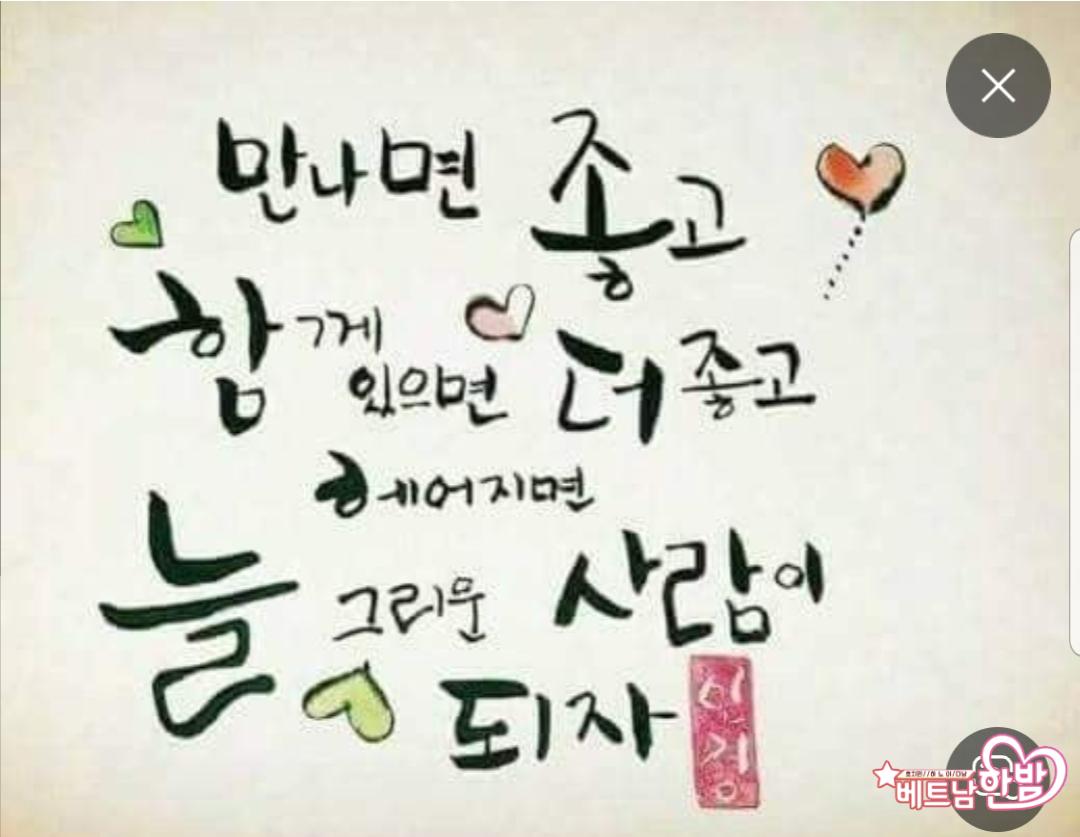 만나면 좋고
함께 있으면 더 좋고
헤어지면
늘 그리운 사람이
되자
베트남 한밤